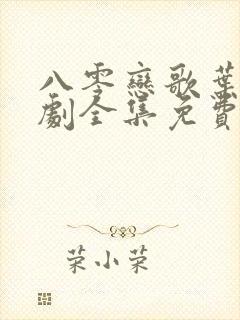 八零戀歌葉
劇全集免費
菜小菜